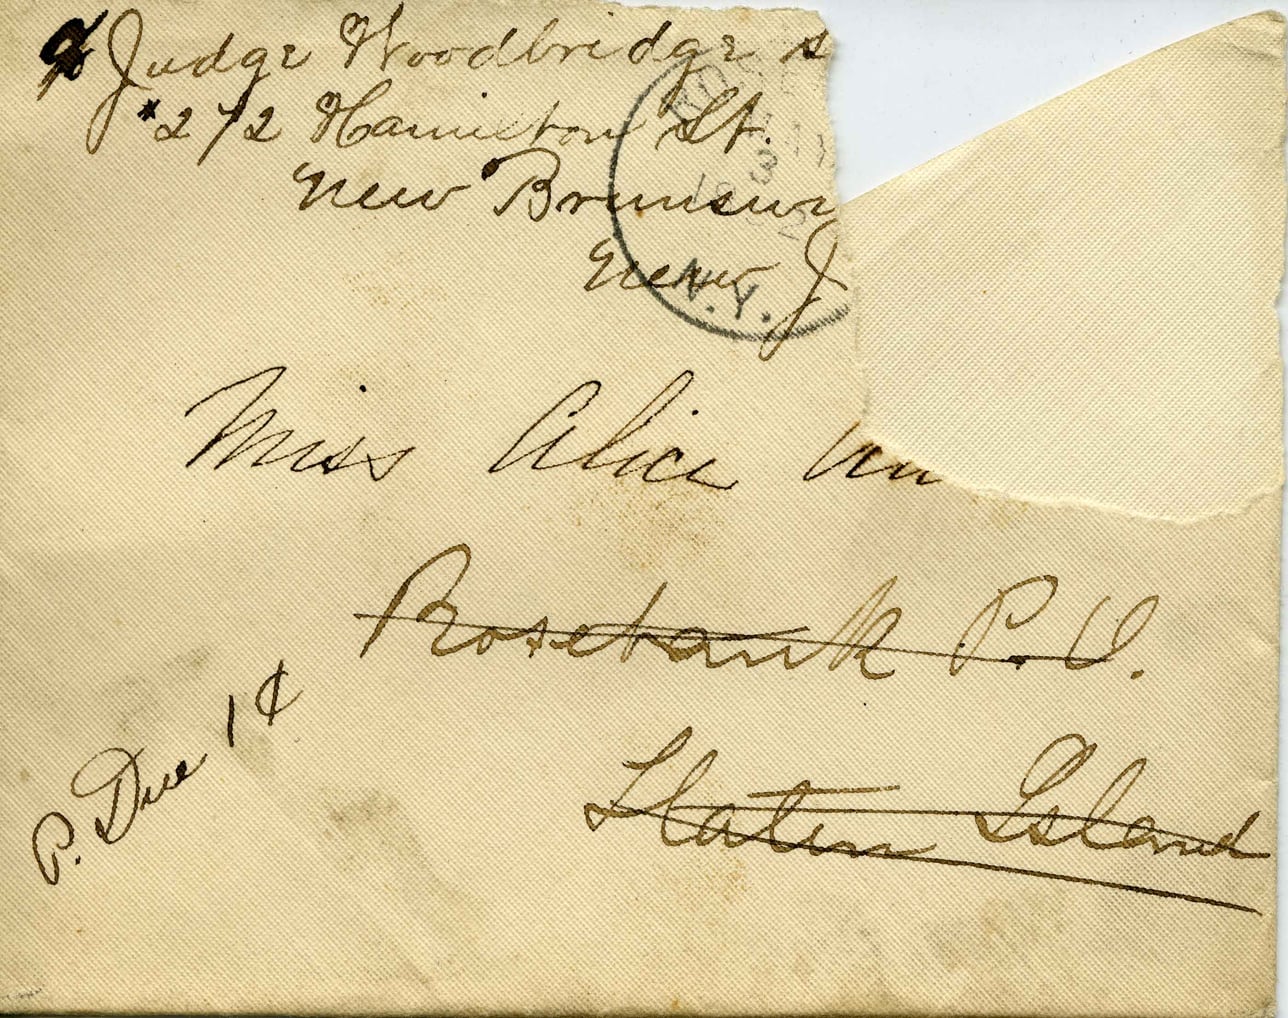 c/o Judge Woodbridge s
#272 Hamilton St.
New Brunswi
New J
MAY
3
N.Y.
Miss Alice
Rosebank P.O.
Staten Island
P. Due 1¢